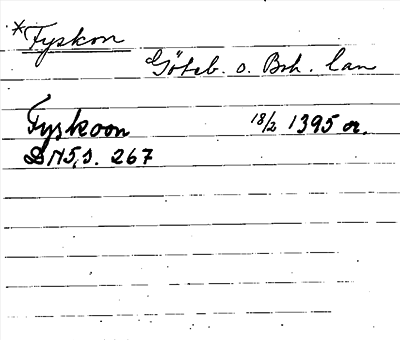 *Fyskon
Göteb. o. Boh. län
Fyskoon 18/2 1395 or.
DN 5, s. 267